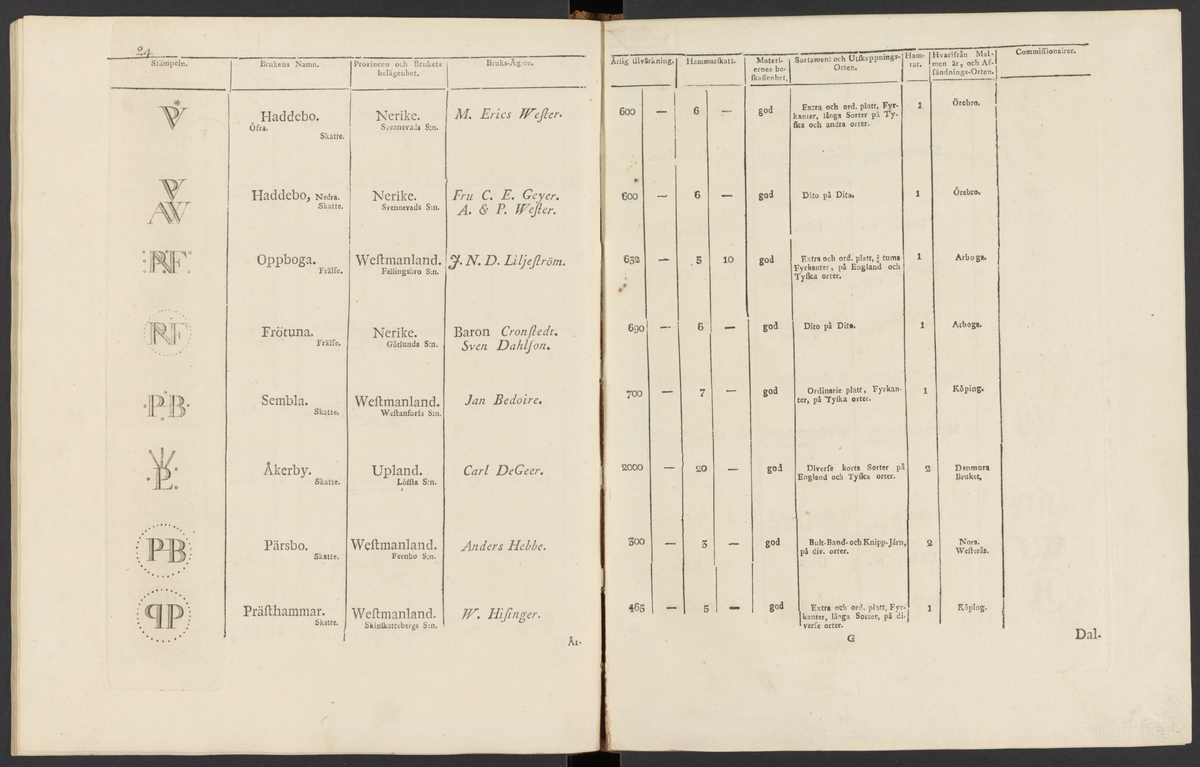 24.
Stämpeln. Brukens Namn. Provincen och Brukets belägenhet. Bruks-Ägare.
Årlig tillvärkning. Hammarſkatt. Materiernes beſkaffenhet. Sortament och Utſkeppnings-Orten. Hamrar. Hvarifrån Malmen är, och Afſändnings-Orten. Commiſſionairer.
Haddebo. Nerike. M. Erics Weſter. 600 — 6 — god Extra och ord. platt, Fyr- 1 Örebro.
Öfra. Svennevads S:n. kanter, långa Sorter på Ty-
Skatte. ſka och andra orter.
Haddebo, Nedra. Nerike. Fru C. E. Geyer. 600 — 6 — god Dito på Dito. 1 Örebro.
Skatte. Svennevads S:n. A. & P. Weſter.
AW
:RF: Oppboga. Weſtmanland. J. N. D. Liljeſtröm. 632 — 5 10 god Extra och ord. platt, ¾ tums 1 Arboga.
Frälſe. Fellingsbro S:n. Fyrkanter, på England och
Tyſka orter.
RF Frötuna. Nerike. Baron Cronſtedt. 690 — 6 — god Dito på Dito. 1 Arboga.
Frälſe. Götlunda S:n. Sven Dahlſon.
P.B Sembla. Weſtmanland. Jan Bedoire. 700 — 7 — god Ordinarie platt, Fyrkan- 1 Köping.
Skatte. Weſtanforſs S:n. ter, på Tyſka orter.
Åkerby. Upland. Carl DeGeer. 2000 — 20 — god Diverſe korta Sorter på 2 Danmora
Skatte. Löfſta S:n. England och Tyſka orter. Bruket,
PB Pärsbo. Weſtmanland. Anders Hebbe. 300 — 3 — god Bult-Band-och Knipp-Järn, 2 Nora.
Skatte. Fernbo S:n. på div. orter. Weſterås.
PP Präſthammar. Weſtmanland. W. Hiſinger. 465 — 5 — god Extra och ord. platt, Fyr- 1 Köping.
Skatte. Skinſkattebergs S:n. kanter, långa Sorter, på di-
verſe orter.
År-
G
Dal-